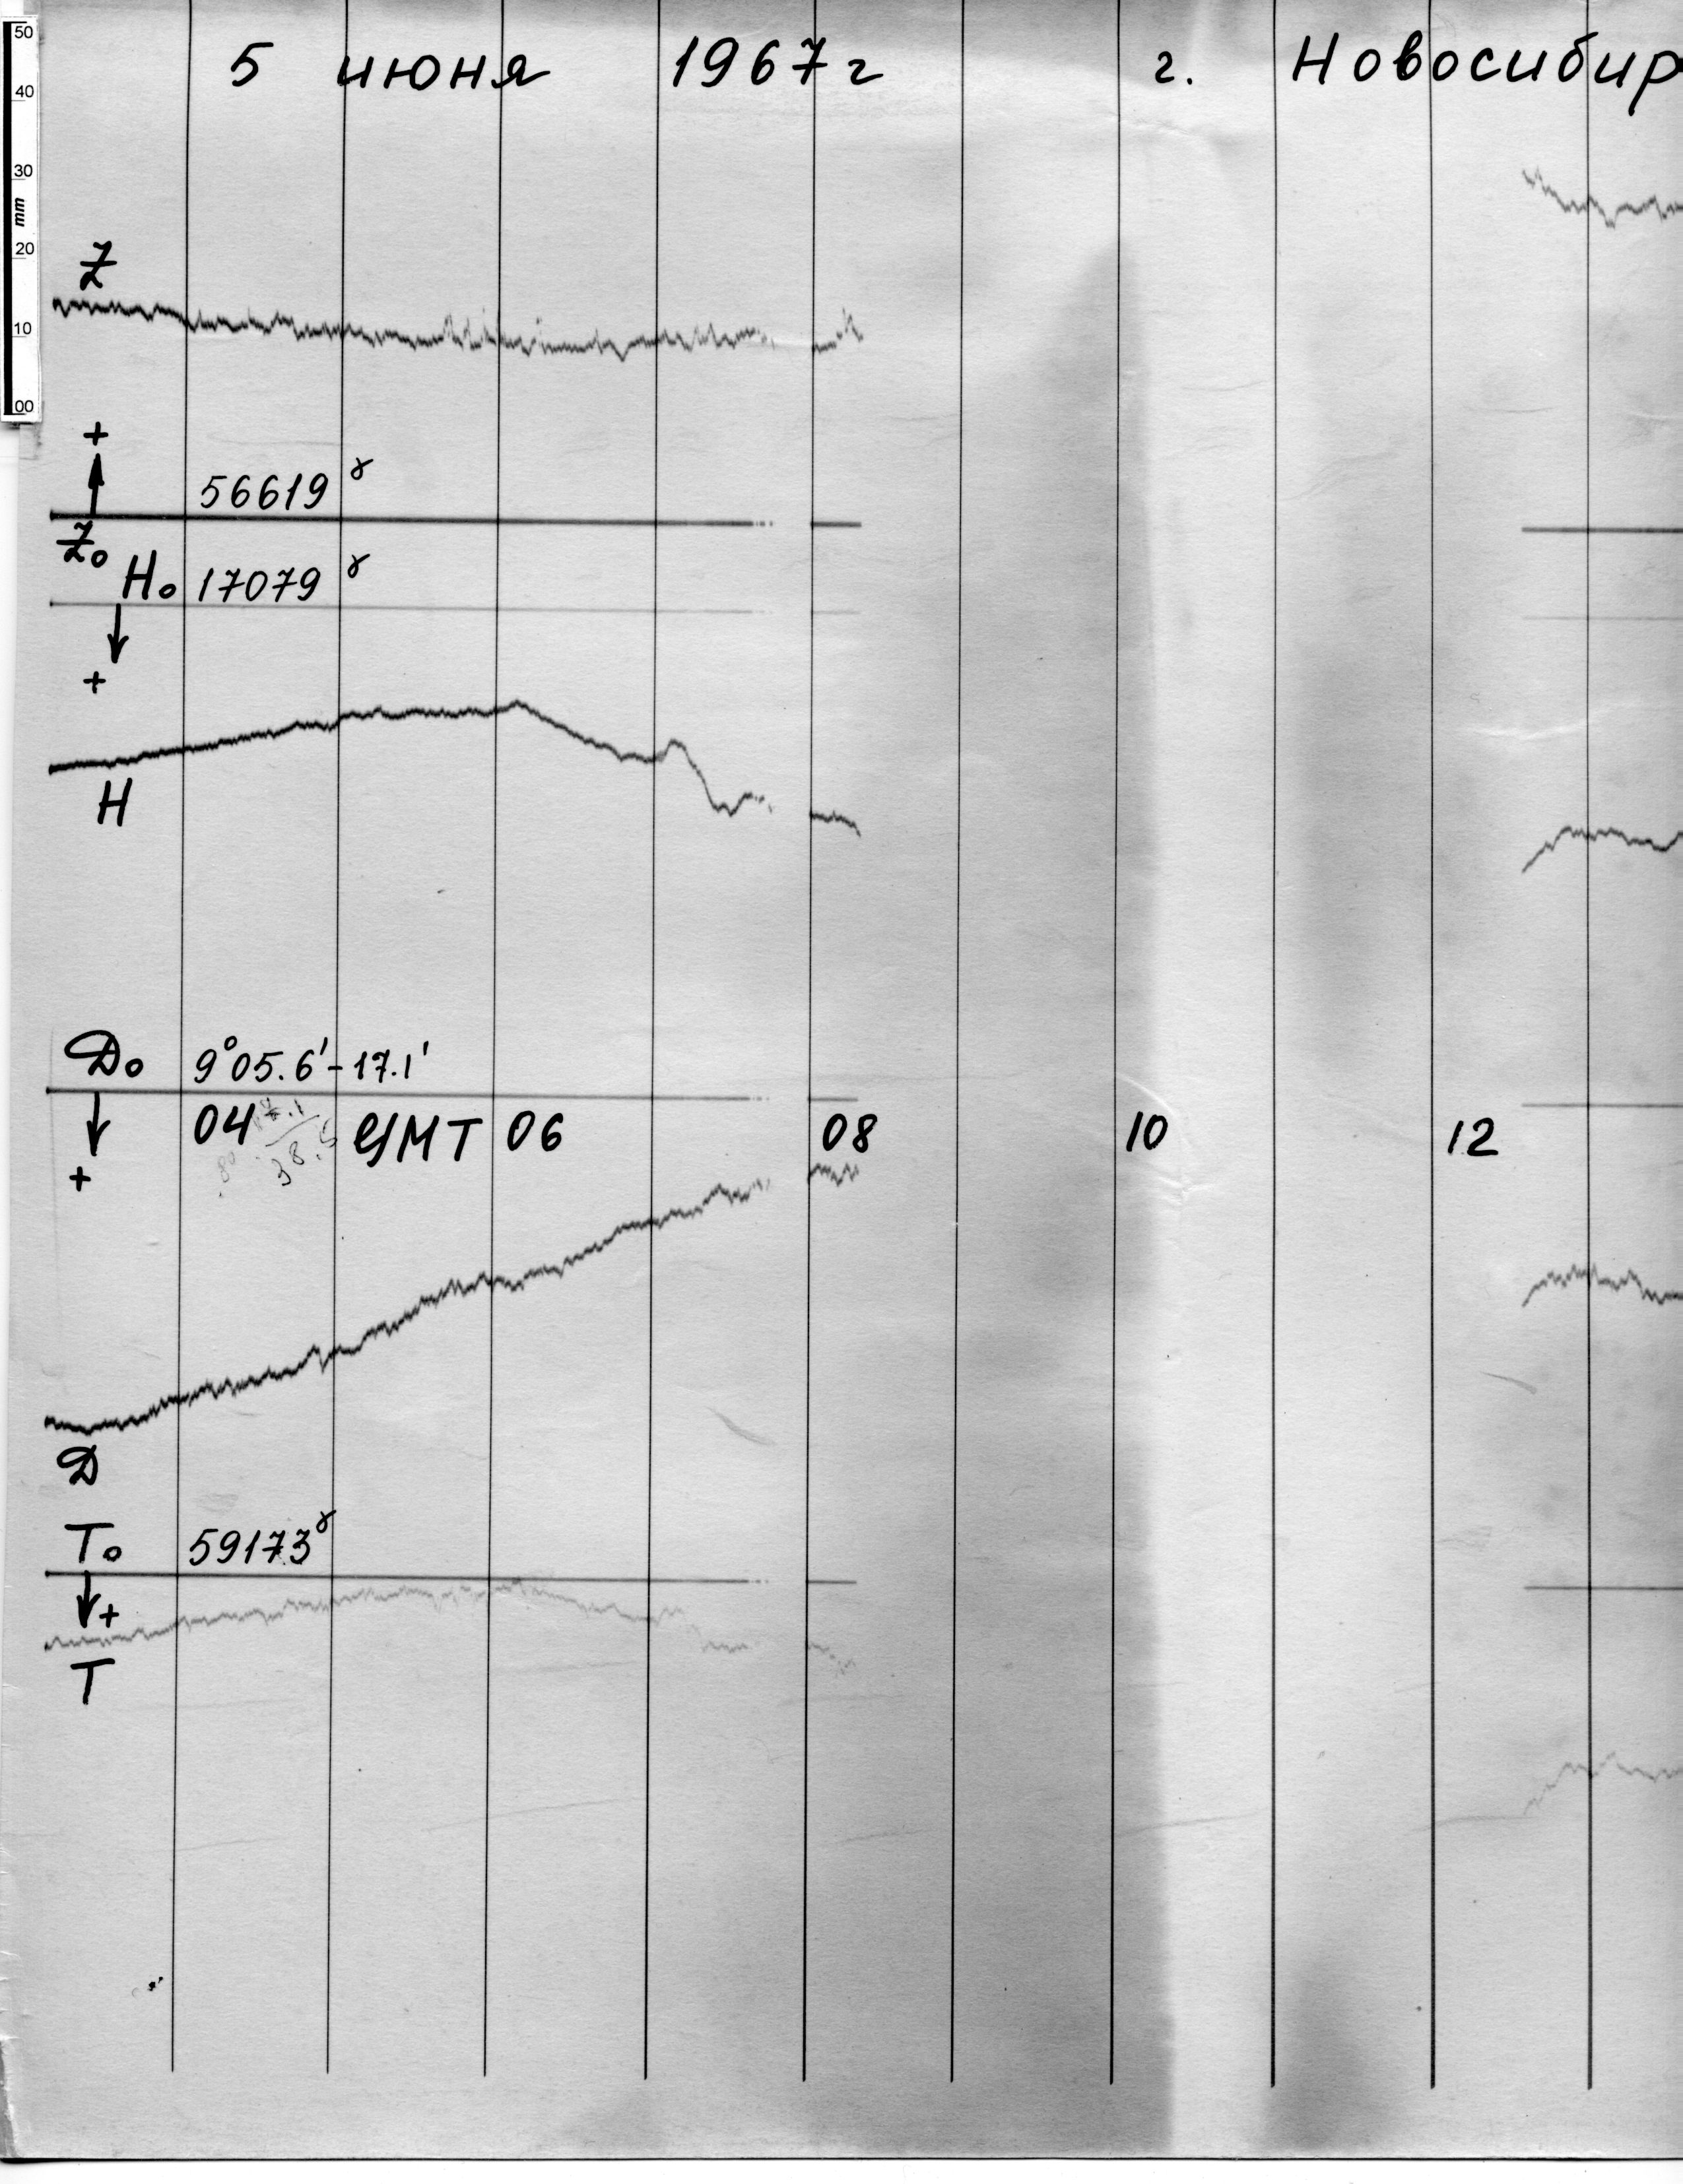 50
40
30
mm
20
10
00
5 июня 1967 г г. Новосибир
Z
+
56619 γ
Z₀
H₀ 17079 γ
+
H
D₀ 9°05.6'-17.1'
04 GMT 06 08 10 12
+
38.5
D
T₀ 59173 γ
+
T